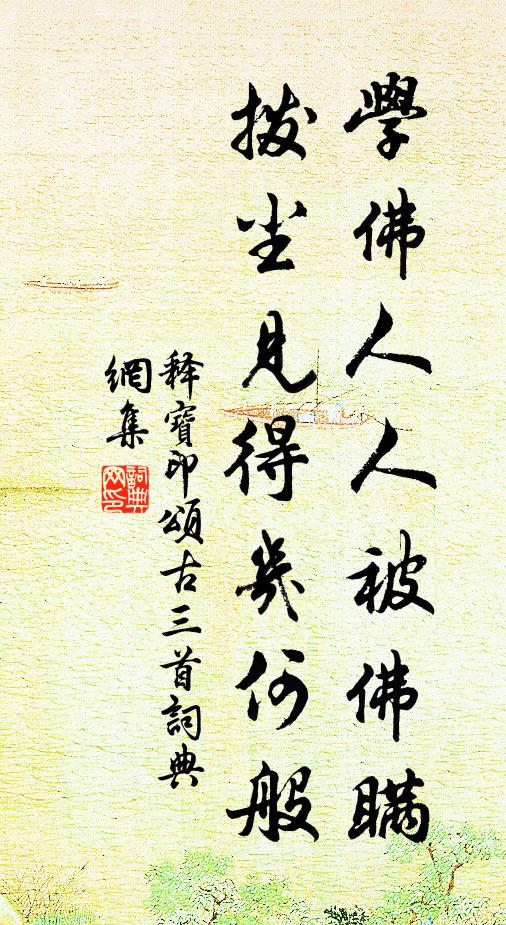 學佛人人被佛瞞
撥塵見得幾何般
释寶印頌古三首詞典
網集
詞典網